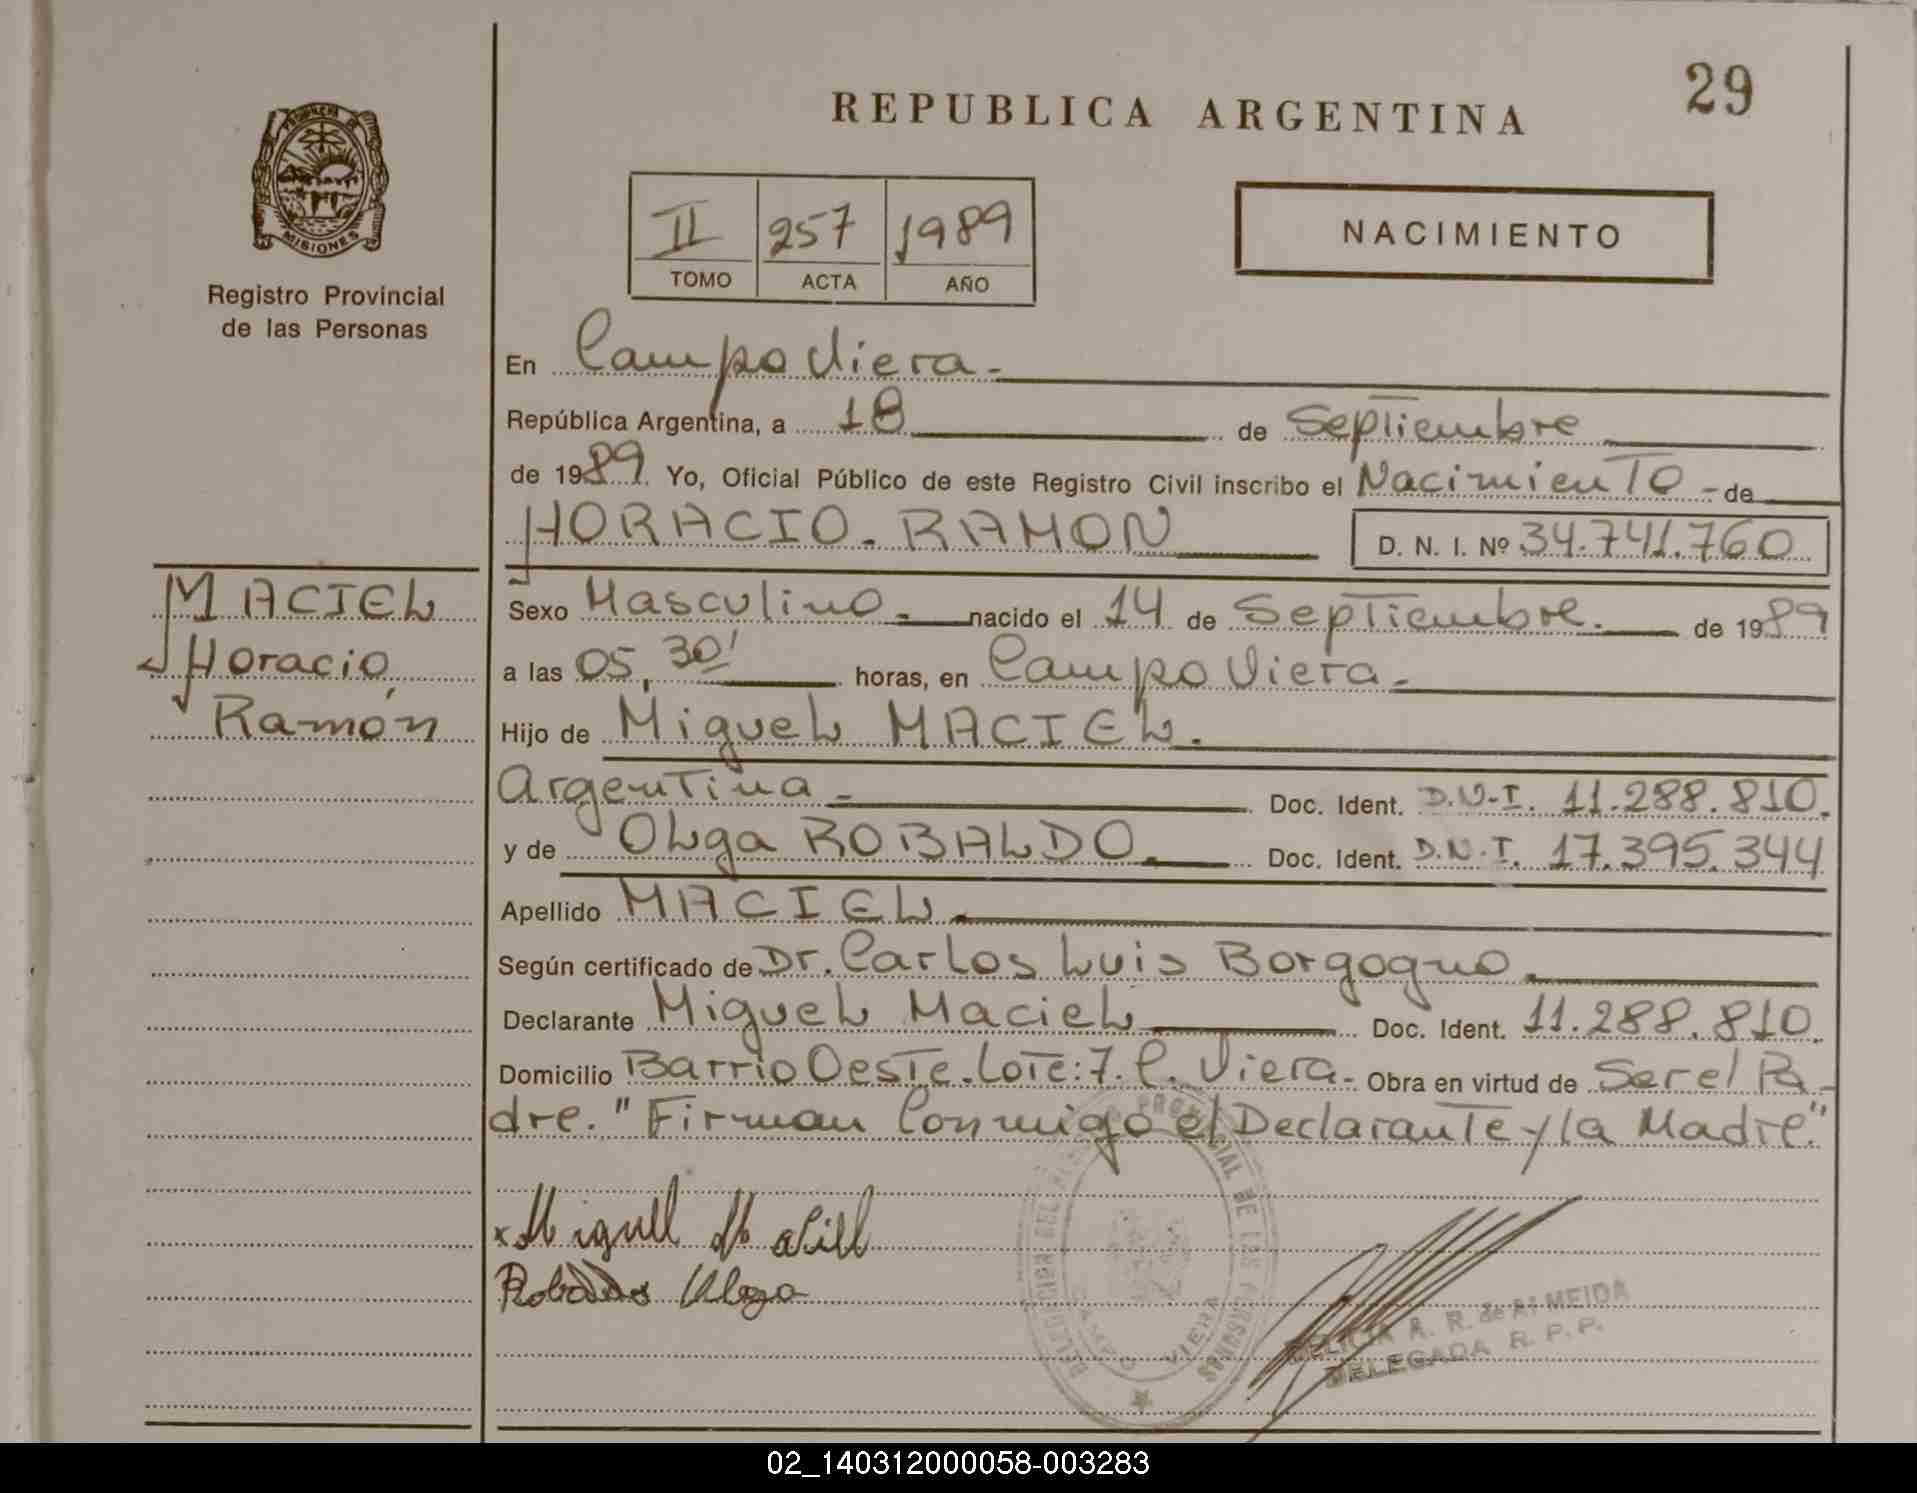 29
REPUBLICA ARGENTINA
PROVINCIA DE
MISIONES
Registro Provincial
de las Personas
II 257 1989
TOMO ACTA AÑO
NACIMIENTO
En Campo Viera.-
República Argentina, a 18 de Septiembre
de 1989. Yo, Oficial Público de este Registro Civil inscribo el Nacimiento - de
HORACIO - RAMON D. N. I. Nº 34.741.760
MACIEL
Horacio
Ramón
Sexo Masculino.- nacido el 14 de Septiembre.- de 1989
a las 05,30' horas, en Campo Viera.-
Hijo de Miguel MACIEL.
Argentina - Doc. Ident. D.N.I. 11.288.810.
y de Olga ROBALDO.- Doc. Ident. D.N.I. 17.395.344
Apellido MACIEL.-
Según certificado de Dr. Carlos Luis Borgogno.
Declarante Miguel Maciel Doc. Ident. 11.288.810.
Domicilio Barrio Oeste. Lote: 7. C. Viera.- Obra en virtud de Ser el Pa-
dre. "Firman Conmigo el Declarante y la Madre."
x Miguel Maciel
Robaldo Olga
DELEGACION DEL REGISTRO PROVINCIAL DE LAS PERSONAS
CAMPO VIERA
DELICIA A. R. de ALMEIDA
DELEGADA R. P. P.
02_140312000058-003283